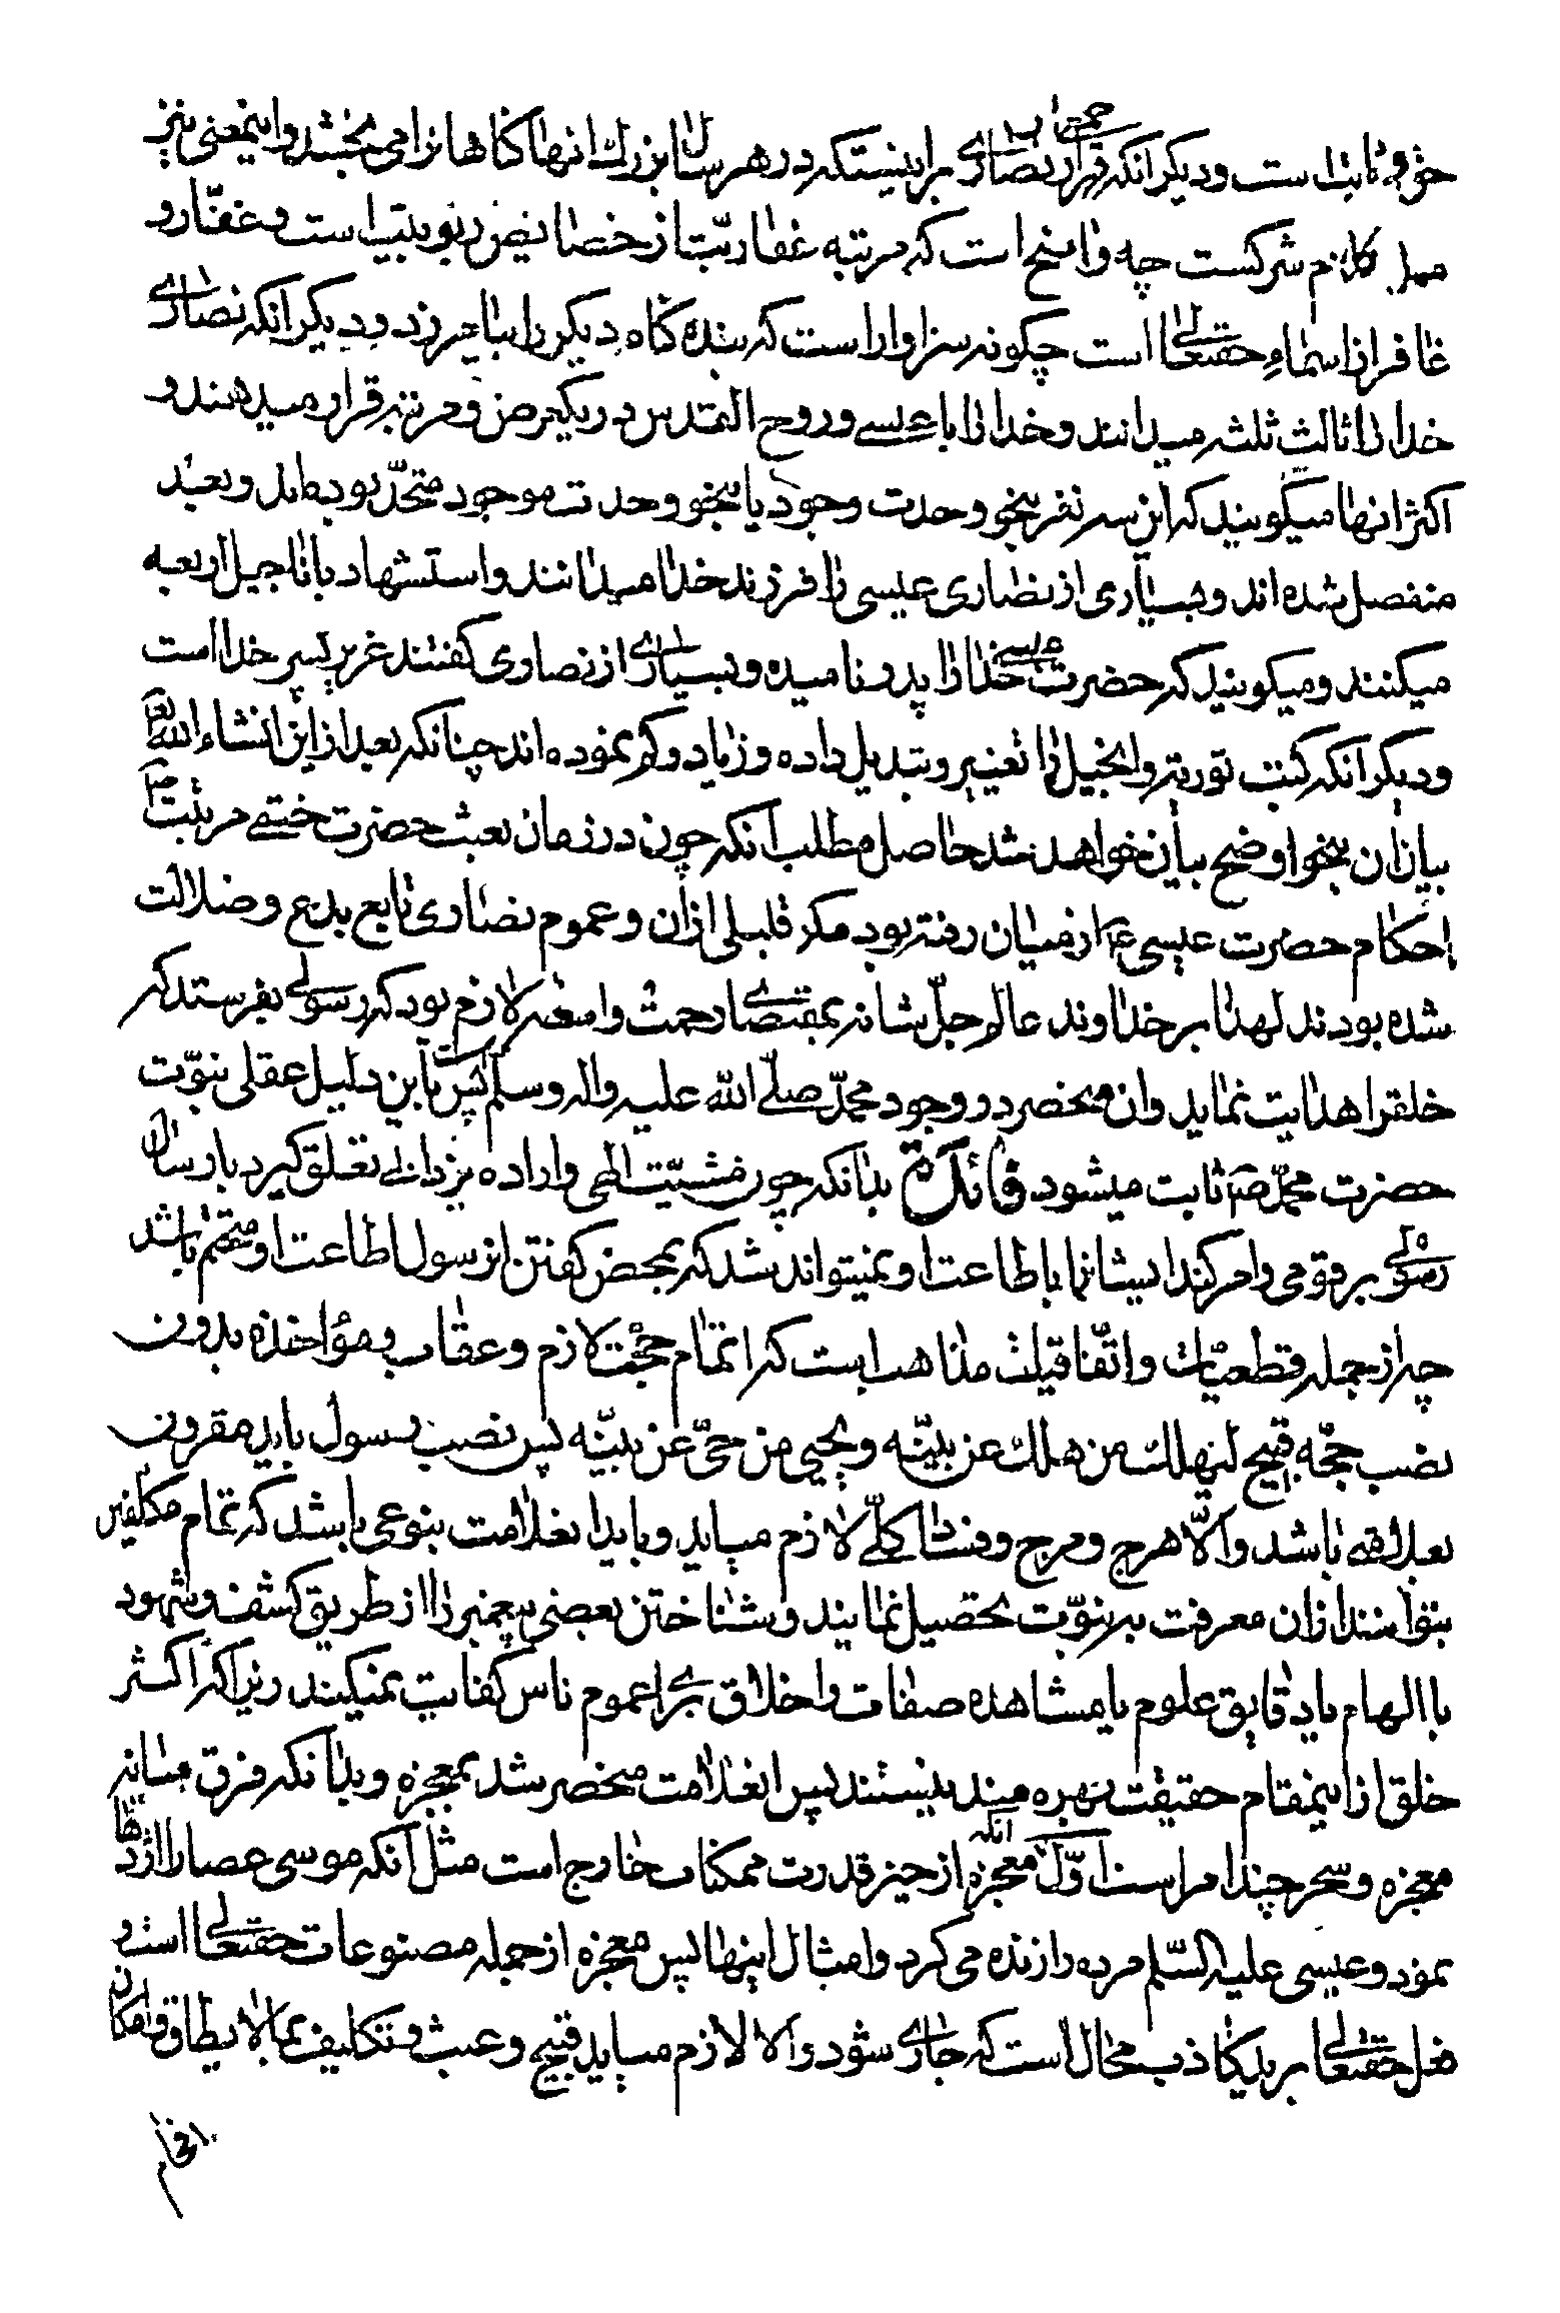 خود ثابت است و دیگر انکه قرار نصاری بر اینستکه در هر سال بزرك انها کناها نرا می بخشد و اینمعنی نیز
کلام شرکست چه واضح است که مرتبه غفاریت از خصایص ربوبیت است و غفار و
غافر از اسماء حقتعالی است چکونه سزاوار است که بنده کناه دیکر را بیامرزد و دیکر انکه نصاری
خدا را ثالث ثلثه میدانند و خدا را با عیسی و روح القدس در یک مرتبه قرار میدهند و
اکثر انها میکویند که این سه نفر بنحو وحدت وجود یا بنحو وحدت موجود متحد بودهاند و بعد
منفصل شده اند و بسیاری از نصاری عیسی را فرزند خدا میدانند و استشهاد باناجیل اربعه
میکنند و میکویند که حضرت عیسی خدا را پدر نامیده و بسیاری از نصاری کفتند عزیر پسر خدا است
و دیکر انکه کتب توریة و انجیل را تغییر و تبدیل داده و زیاد و کم نموده اند چنانکه بعد از این انشاء الله تع
بیان ان بنحو اوضح بیان خواهد شد حاصل مطلب انکه چون در زمان بعثت حضرت ختمی مرتبت ص
احکام حضرت عیسی ع از میان رفته بود مکر قلیلی از ان و عموم نصاری تابع بدع و ضلالت
شده بودند لهذا بر خداوند عالم جل شانه بمقتضای رحمت واسعه لازم بود که رسولی بفرستد که
خلقرا هدایت نماید و ان منحصر در وجود محمد صلی الله علیه واله وسلم است پس باین دلیل عقلی نبوت
حضرت محمد ص ثابت میشود فائدة بدانکه چون مشیت الهی و اراده یزدانی تعلق کیرد بارسال
رسولی بر قومی و امر کند ایشانرا باطاعت او نمیتواند شد که بمحض کفتن از رسول اطاعت او متحتم باشد
چه از جمله قطعیات و اتفاقیات مذاهب است که اتمام حجت لازم و عقاب و مؤاخذه بدون
نصب حجه قبیح لیهلك من هلك عن بینه و یحیی من حی عن بینه پس نصب رسول باید مقرون
بعلامتی باشد و الا هرج و مرج و فساد کلی لازم میاید و باید انعلامت بنوعی باشد که تمام مکلفین
بتوانند از ان معرفت به نبوت تحصیل نمایند و شناختن بعضی پیغمبر را از طریق کشف و شهود
با الهام یا دقایق علوم یا مشاهده صفات و اخلاق برای عموم ناس کفایت نمیکند زیرا که اکثر
خلق از اینمقام حقیقت بهره مند نیستند پس انعلامت منحصر شد بمعجزه و بدانکه فرق میانه
معجزه و سحر چند امر است اول انکه معجزه از حیز قدرت ممکنات خارج است مثل انکه موسی عصا را اژدها
نمود و عیسی علیه السلم مرده را زنده می کرد و امثال اینها پس معجزه از جمله مصنوعات حقتعالی است و
فعل حقتعالی بر ید کاذب محال است که جاری شود و الا لازم میاید قبیح و عبث و تکلیف بما لا یطاق و امکان
افحام